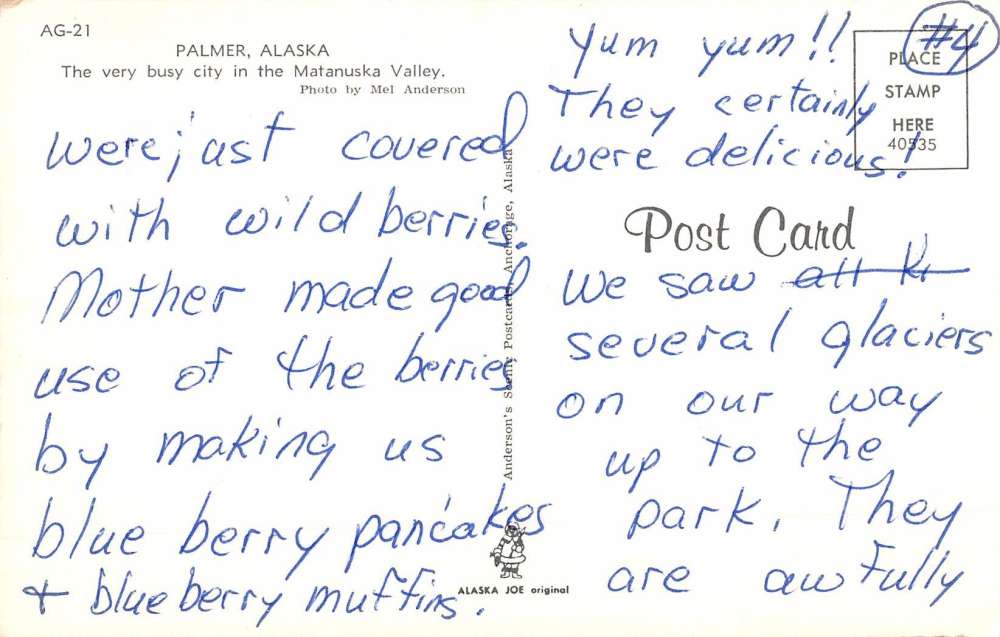 AG-21
PALMER, ALASKA
The very busy city in the Matanuska Valley.
Photo by Mel Anderson
were just covered
with wild berries.
Mother made good
use of the berries
by making us
blue berry pancakes
+ blueberry muffins.
Anderson's Scenic Postcards, Anchorage, Alaska
ALASKA JOE original
#4
PLACE
STAMP
HERE
40535
Yum yum!!
They certainly
were delicious!
Post Card
We saw
several glaciers
on our way
up to the
park. They
are awfully